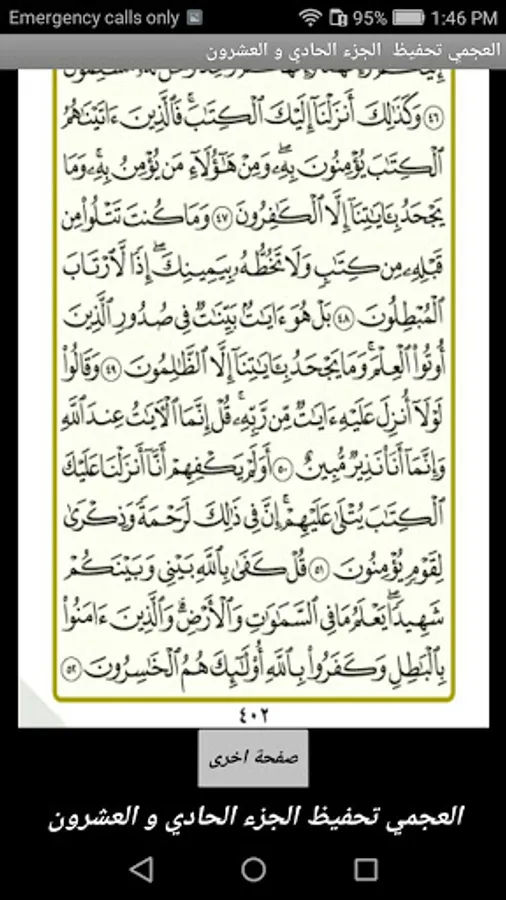 Emergency calls only 95% 1:46 PM
العجمي تحفيظ الجزء الحادي و العشرون
﴿٤٦﴾ وَكَذَٰلِكَ أَنزَلْنَا إِلَيْكَ الْكِتَٰبَ ۚ فَالَّذِينَ ءَاتَيْنَٰهُمُ
الْكِتَٰبَ يُؤْمِنُونَ بِهِۦ ۖ وَمِنْ هَٰٓؤُلَآءِ مَن يُؤْمِنُ بِهِۦ ۚ وَمَا
يَجْحَدُ بِـَٔايَٰتِنَآ إِلَّا الْكَٰفِرُونَ ﴿٤٧﴾ وَمَا كُنتَ تَتْلُوا۟ مِن
قَبْلِهِۦ مِن كِتَٰبٍ وَلَا تَخُطُّهُۥ بِيَمِينِكَ ۖ إِذًا لَّارْتَابَ
الْمُبْطِلُونَ ﴿٤٨﴾ بَلْ هُوَ ءَايَٰتٌۢ بَيِّنَٰتٌ فِى صُدُورِ الَّذِينَ
أُوتُوا۟ الْعِلْمَ ۚ وَمَا يَجْحَدُ بِـَٔايَٰتِنَآ إِلَّا الظَّٰلِمُونَ ﴿٤٩﴾ وَقَالُوا۟
لَوْلَآ أُنزِلَ عَلَيْهِ ءَايَٰتٌ مِّن رَّبِّهِۦ ۖ قُلْ إِنَّمَا الْـَٔايَٰتُ عِندَ اللَّهِ
وَإِنَّمَآ أَنَا۠ نَذِيرٌ مُّبِينٌ ﴿٥٠﴾ أَوَلَمْ يَكْفِهِمْ أَنَّآ أَنزَلْنَا عَلَيْكَ
الْكِتَٰبَ يُتْلَىٰ عَلَيْهِمْ ۚ إِنَّ فِى ذَٰلِكَ لَرَحْمَةً وَذِكْرَىٰ
لِقَوْمٍ يُؤْمِنُونَ ﴿٥١﴾ قُلْ كَفَىٰ بِاللَّهِ بَيْنِى وَبَيْنَكُمْ
شَهِيدًا ۖ يَعْلَمُ مَا فِى السَّمَٰوَٰتِ وَالْأَرْضِ ۗ وَالَّذِينَ ءَامَنُوا۟
بِالْبَٰطِلِ وَكَفَرُوا۟ بِاللَّهِ أُو۟لَٰٓئِكَ هُمُ الْخَٰسِرُونَ ﴿٥٢﴾
٤٠٢
صفحة اخرى
العجمي تحفيظ الجزء الحادي و العشرون